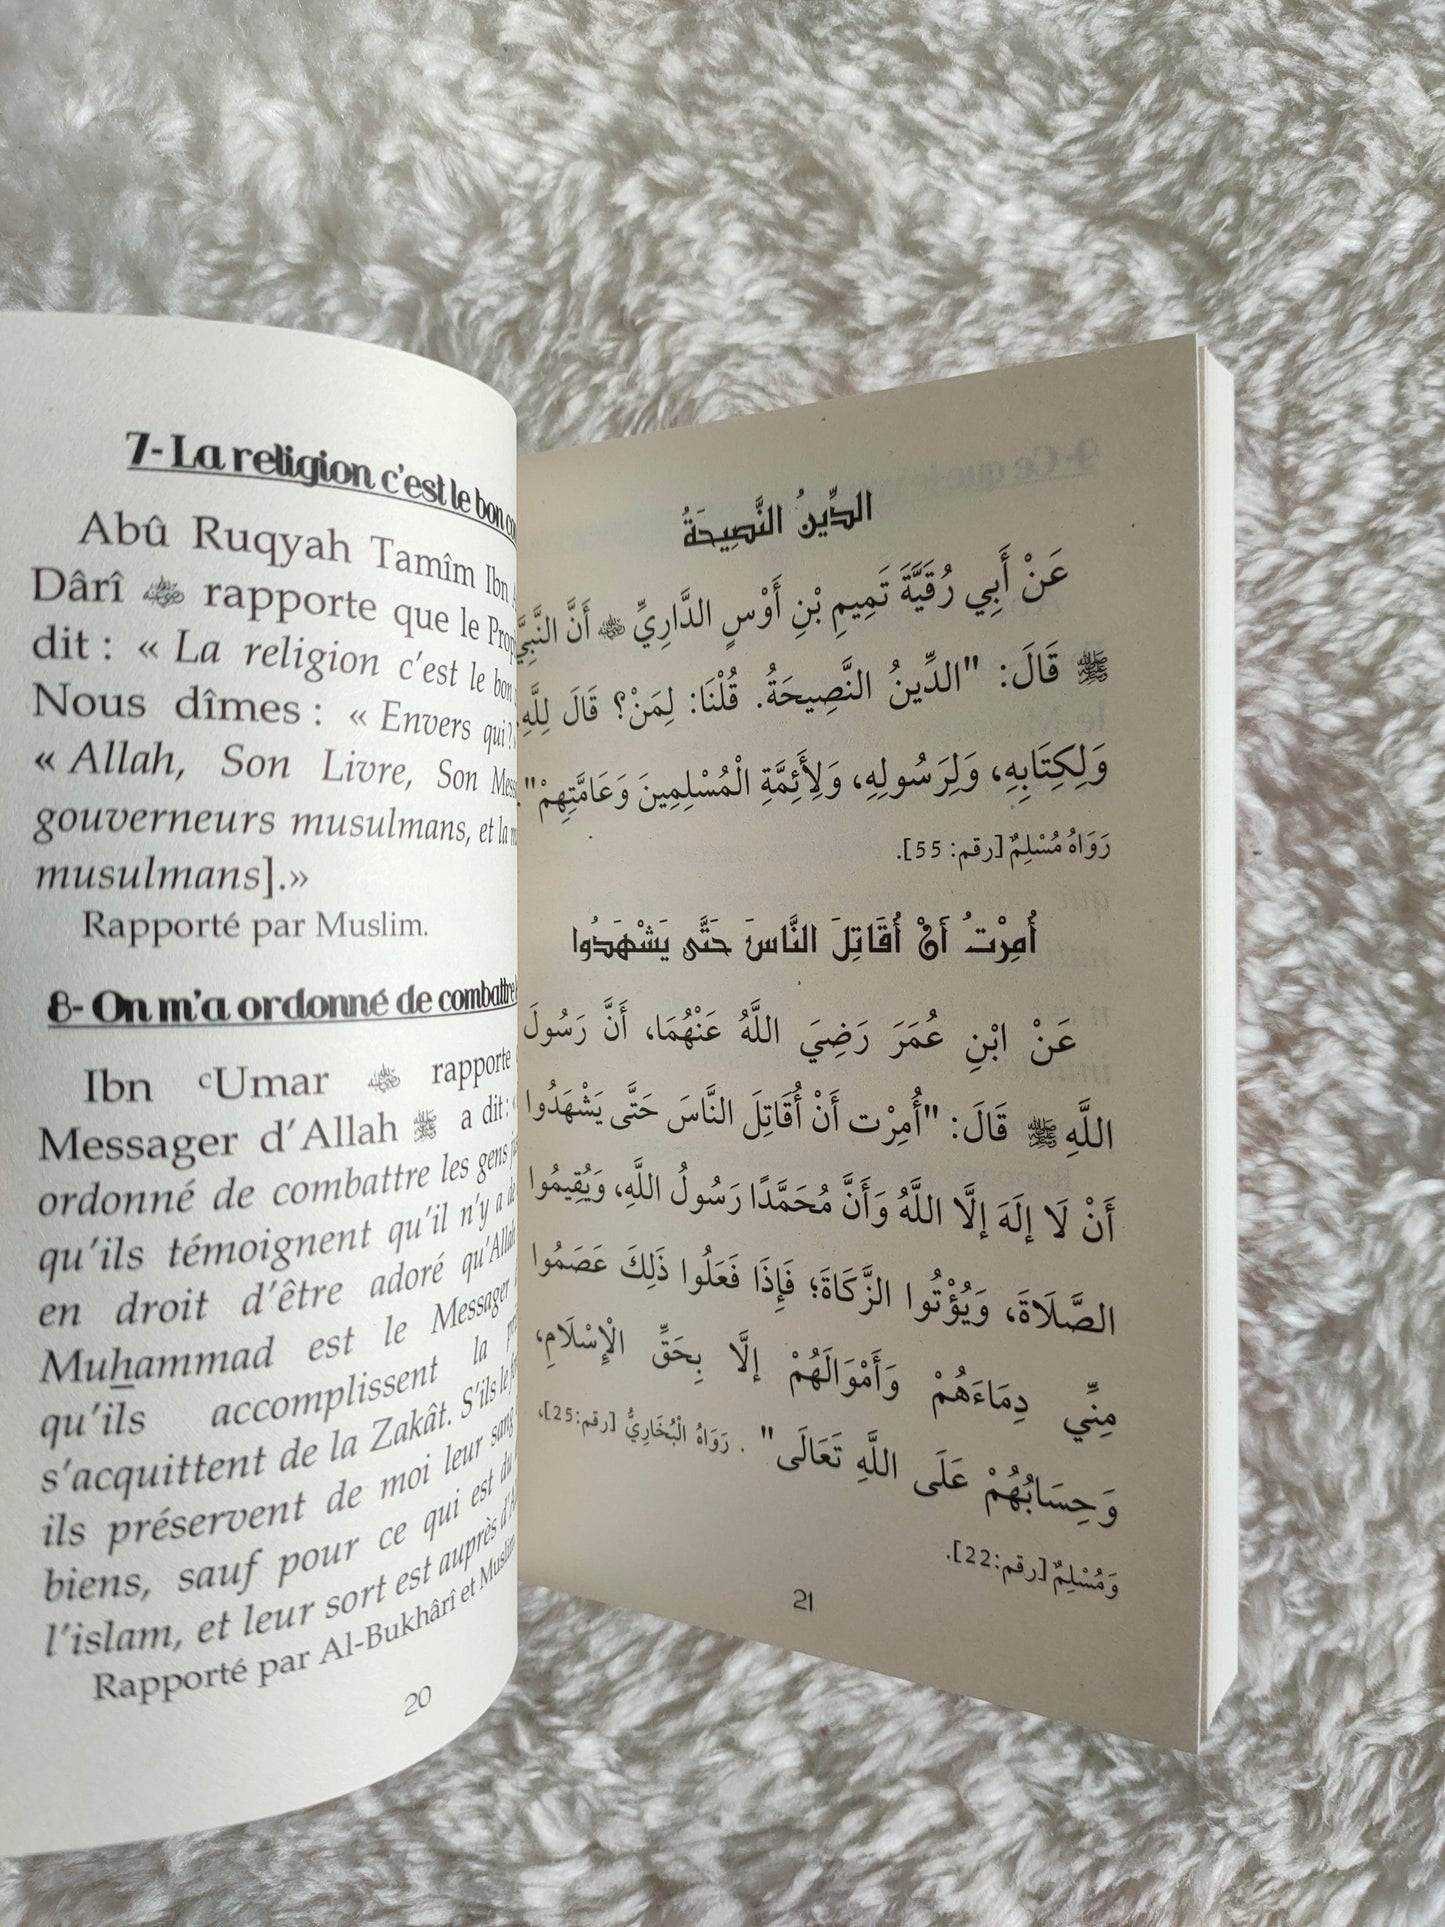 7- La religion c'est le bon
Abû Ruqyah Tamîm Ibn
Dârî رضي الله عنه rapporte que le
dit : « La religion c'est le bon
Nous dîmes : « Envers qui ?
« Allah, Son Livre, Son
gouverneurs musulmans, et la
musulmans].»
Rapporté par Muslim.
8- On m'a ordonné de combattre
Ibn ᶜUmar رضي الله عنه rapporte
Messager d'Allah ﷺ a dit :
ordonné de combattre les gens
qu'ils témoignent qu'il n'y a de
en droit d'être adoré qu'Allah
Muhammad est le Messager
qu'ils accomplissent la
s'acquittent de la Zakât. S'ils le
ils préservent de moi leur sang
biens, sauf pour ce qui est du
l'islam, et leur sort est auprès
Rapporté par Al-Bukhârî et Muslim
20
الدِّينُ النَّصِيحَةُ
عَنْ أَبِي رُقَيَّةَ تَمِيمِ بْنِ أَوْسٍ الدَّارِيِّ رضي الله عنه أَنَّ النَّبِيَّ
ﷺ قَالَ: "الدِّينُ النَّصِيحَةُ. قُلْنَا: لِمَنْ؟ قَالَ لِلَّهِ،
وَلِكِتَابِهِ، وَلِرَسُولِهِ، وَلِأَئِمَّةِ الْمُسْلِمِينَ وَعَامَّتِهِمْ".
رَوَاهُ مُسْلِمٌ [رقم: 55].
أُمِرْتُ أَنْ أُقَاتِلَ النَّاسَ حَتَّى يَشْهَدُوا
عَنْ ابْنِ عُمَرَ رَضِيَ اللَّهُ عَنْهُمَا، أَنَّ رَسُولَ
اللَّهِ ﷺ قَالَ: "أُمِرْت أَنْ أُقَاتِلَ النَّاسَ حَتَّى يَشْهَدُوا
أَنْ لَا إلَهَ إلَّا اللَّهُ وَأَنَّ مُحَمَّدًا رَسُولُ اللَّهِ، وَيُقِيمُوا
الصَّلَاةَ، وَيُؤْتُوا الزَّكَاةَ؛ فَإِذَا فَعَلُوا ذَلِكَ عَصَمُوا
مِنِّي دِمَاءَهُمْ وَأَمْوَالَهُمْ إلَّا بِحَقِّ الْإِسْلَامِ،
وَحِسَابُهُمْ عَلَى اللَّهِ تَعَالَى" . رَوَاهُ الْبُخَارِيُّ [رقم:25]،
وَمُسْلِمٌ [رقم:22].
21